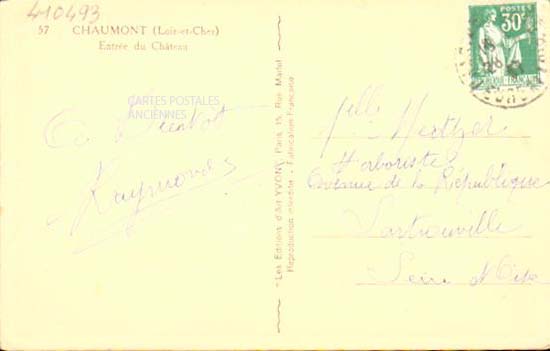 410493
57 CHAUMONT (Loir-et-Cher)
Entrée du Château
CARTES POSTALES
ANCIENNES
Bientôt
Raymonde
"Les Editions d'Art YVON", Paris, 15, Rue Martel
Reproduction interdite - Fabrication Française
POSTES
30c
RÉPUBLIQUE FRANÇAISE
Melle Hertzer
Herboriste
avenue de la République
Sartrouville
Seine et Oise